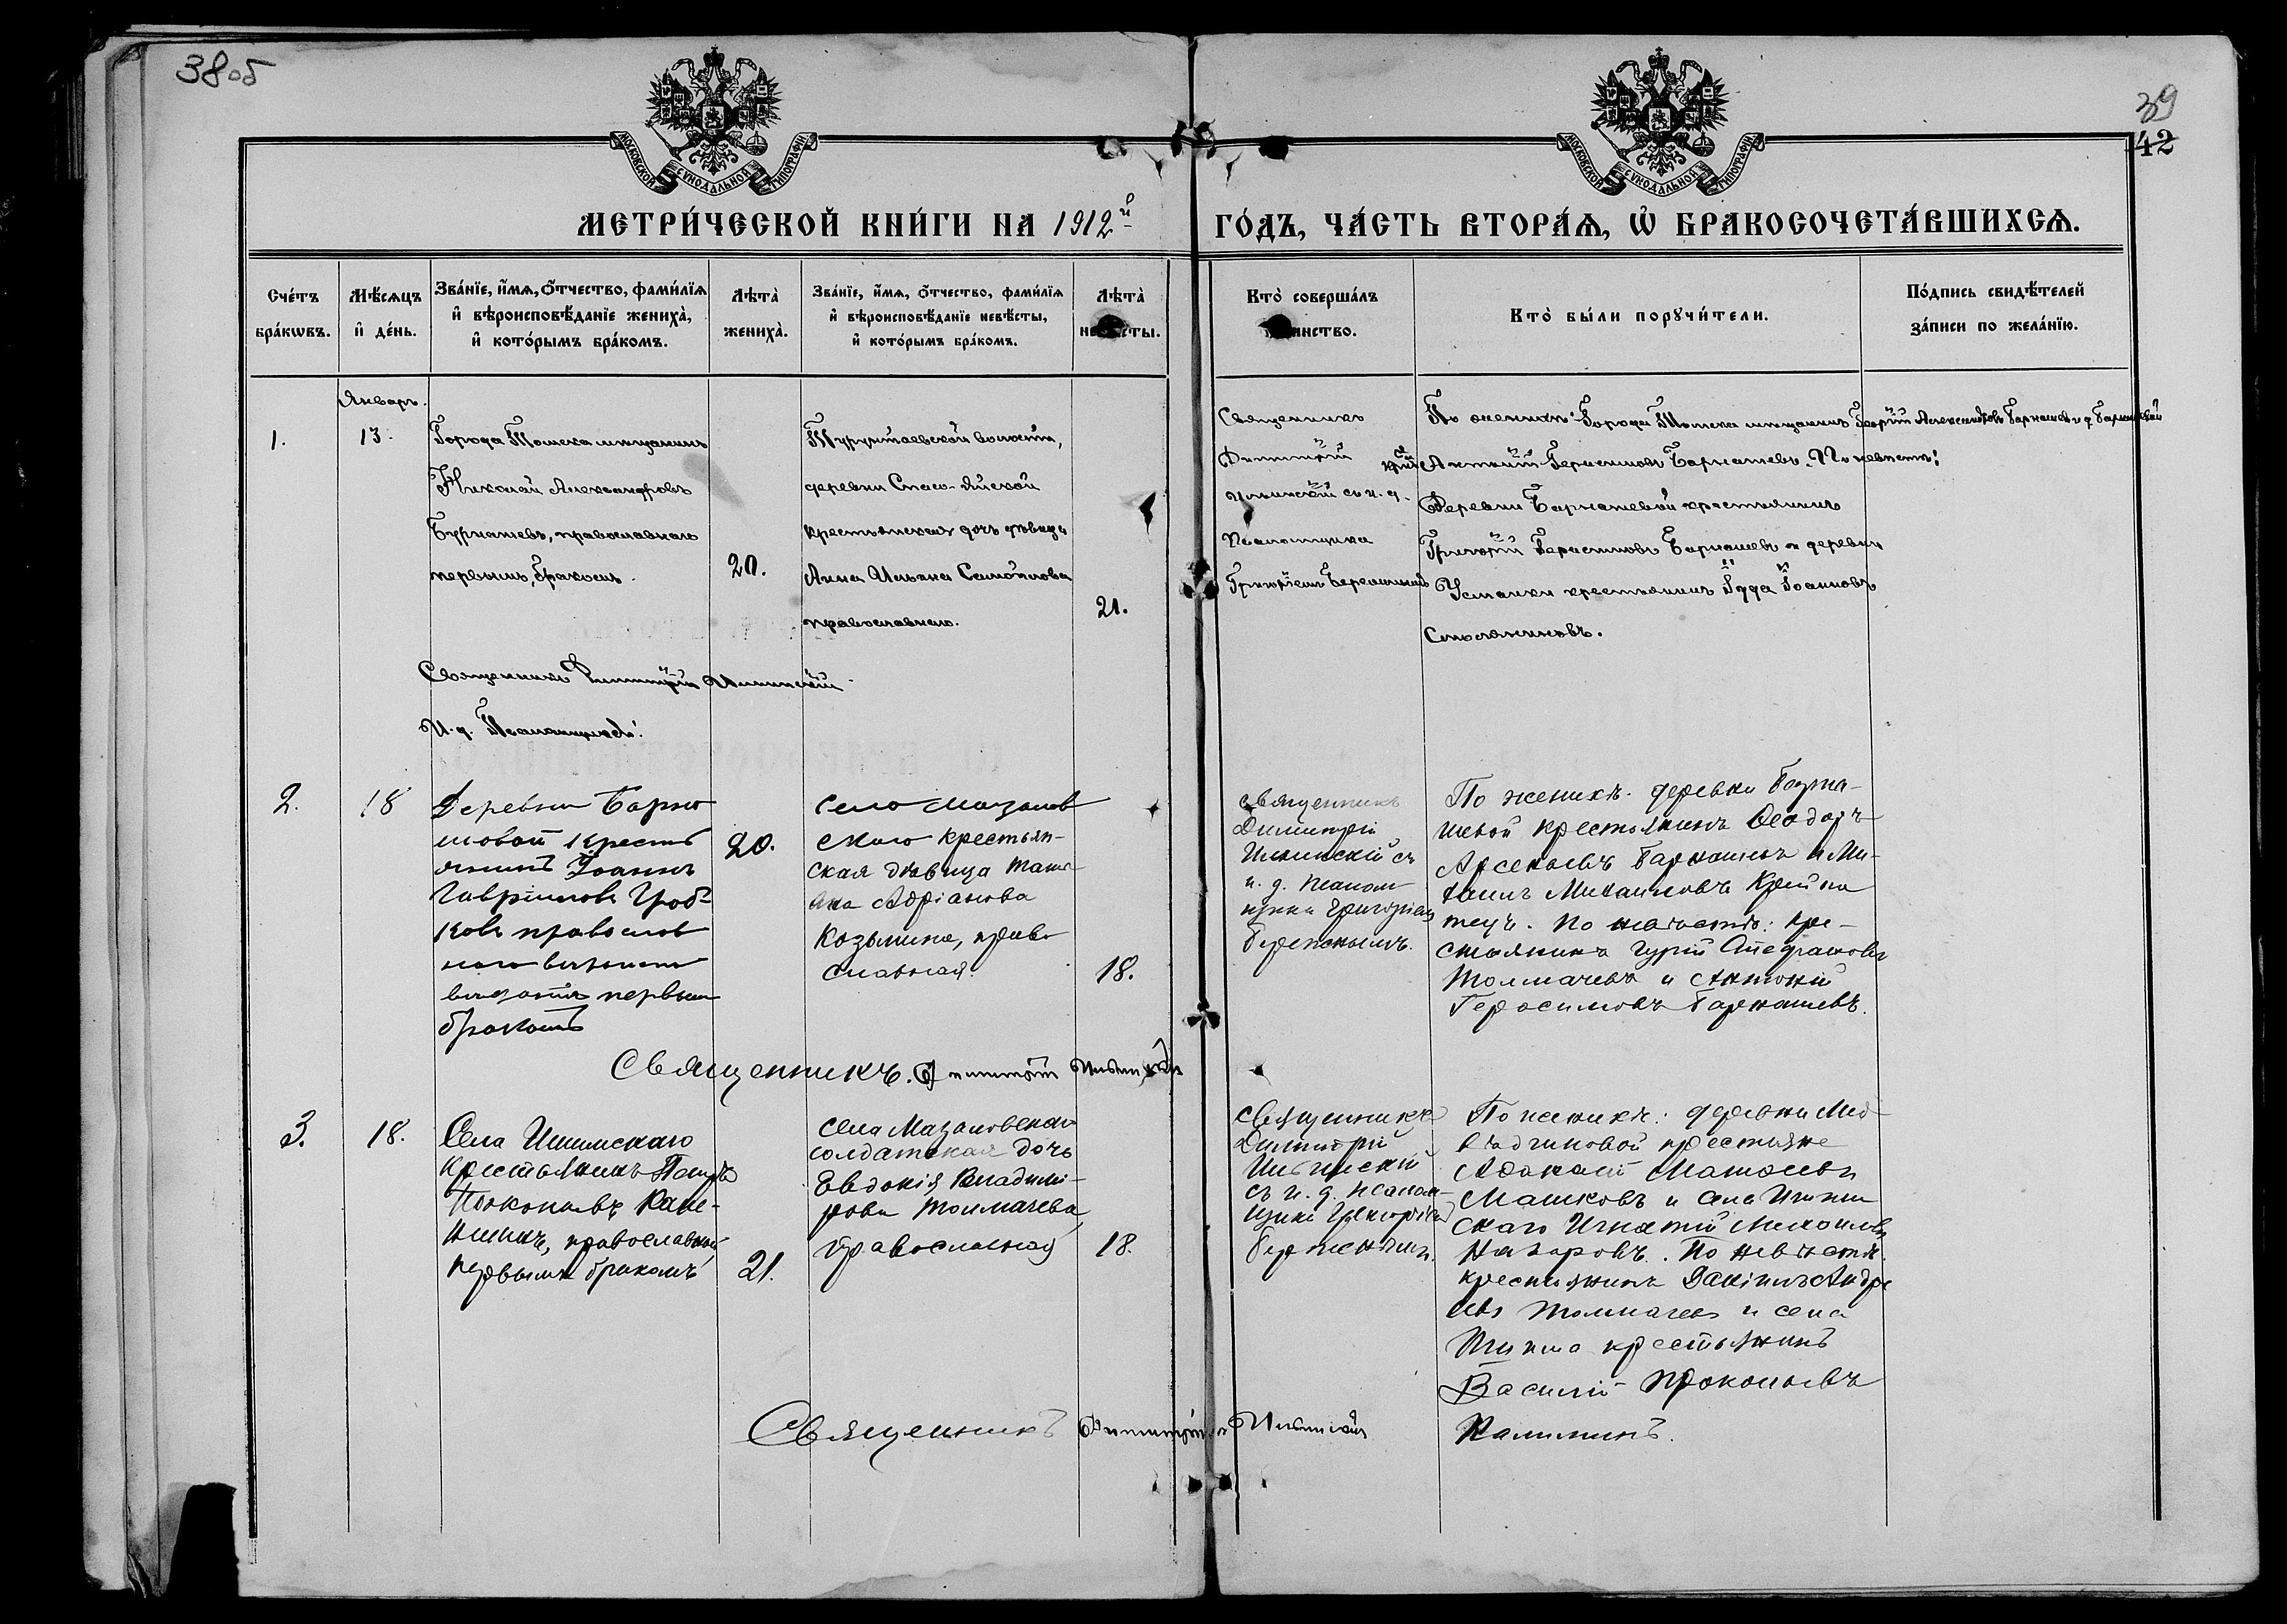 38об
39
42
МОСКОВСКОЙ СѴНОДАЛЬНОЙ ТИПОГРАФІИ
МОСКОВСКОЙ СѴНОДАЛЬНОЙ ТИПОГРАФІИ
МЕТРИ́ЧЕСКОЙ КНИ́ГИ НА 1912й
ГО́ДЪ, ЧА́СТЬ ВТОРА́Ѧ, Ѡ҆ БРАКОСОЧЕТА́ВШИХСѦ.
Сче́тъ
бра́кѡвъ.
Мѣ́сѧцъ
и҆ де́нь.
Зва́нїе, и҆́мѧ, ѻ҆́тчество, фами́лїѧ
и҆ вѣроисповѣ́данїе жениха̀,
и҆ кото́рымъ бра́комъ.
Лѣта̀
жениха̀.
Зва́нїе, и҆́мѧ, ѻ҆́тчество, фами́лїѧ
и҆ вѣроисповѣ́данїе невѣ́сты,
и҆ кото́рымъ бра́комъ.
Лѣта̀
невѣ́сты.
Кто̀ соверша́лъ
таинство.
Кто̀ бы́ли порꙋчи́тели.
По́дпись свидѣ́телей
за́писи по жела́нїю.
1.
Январь.
13.
Города Томска мещанинъ
Николай Александровъ
Бурнашевъ, православнаго
первымъ бракомъ.
20.
Турунтаевской волости,
деревни Спасо-Яйской
крестьянская дочь дѣвица
Анна Ильина Самойлова
православнаго.
21.
Священникъ
Димитрій
Ильинскій съ и. д.
Псаломщика
Григоріемъ
По женихѣ: Города Томска мещанинъ Георгій Александровъ и д.
Антоній Герасимовъ Барнашевъ. По невѣстѣ:
Деревни Барнашевой крестьянинъ
Григорій Герасимовъ Барнашевъ и деревни
Усманки крестьянинъ Іуда Іоанновъ
Священникъ Димитрій Ильинскій
И. д. Псаломщика
2.
18
Деревни Барна
шовой кресть
янинъ Іоаннъ
Гавріиловъ
православ
первым
бракомъ
20.
Село Мазалов
скаго крестьян-
ская дѣвица Тать
яна Адріанова
Козьмина, право
славная.
18.
священникъ
Димитрій
Ильинскій съ
и. д. псалом
щика Григоріем
По женихѣ. деревни Барна-
шевой крестьянинъ Ѳеодоръ
Арсеньевъ Барнашевъ и Ми-
хаилъ Михаиловъ
По невѣстѣ: кре-
стьянинъ Гурій
Толмачевъ и Антоній
Герасимовъ Барнашевъ.
Священникъ. Димитрій Ильинскій
3.
18.
Села Ишимскаго
крестьянинъ Петръ
Прокопьевъ Кали-
нинъ, православный
первымъ бракомъ
21.
села Мазаловскаго
солдатская дочь
Евдокія Владими-
рова Толмачева
православная
18.
Священникъ
Димитрій
Ильинскій
съ и. д. псалом-
щика Григоріем
По женихѣ: деревни Мед
вѣдчиковой крестьяне
Машковъ и села Ишим
скаго Игнатій Михаиловъ
Назаровъ. По невѣстѣ.
крестьянинъ Даніилъ Андре
евъ Толмачевъ и села
Ишима крестьянинъ
Василій Прокопьевъ
Калининъ.
Священникъ Димитрій Ильинскій